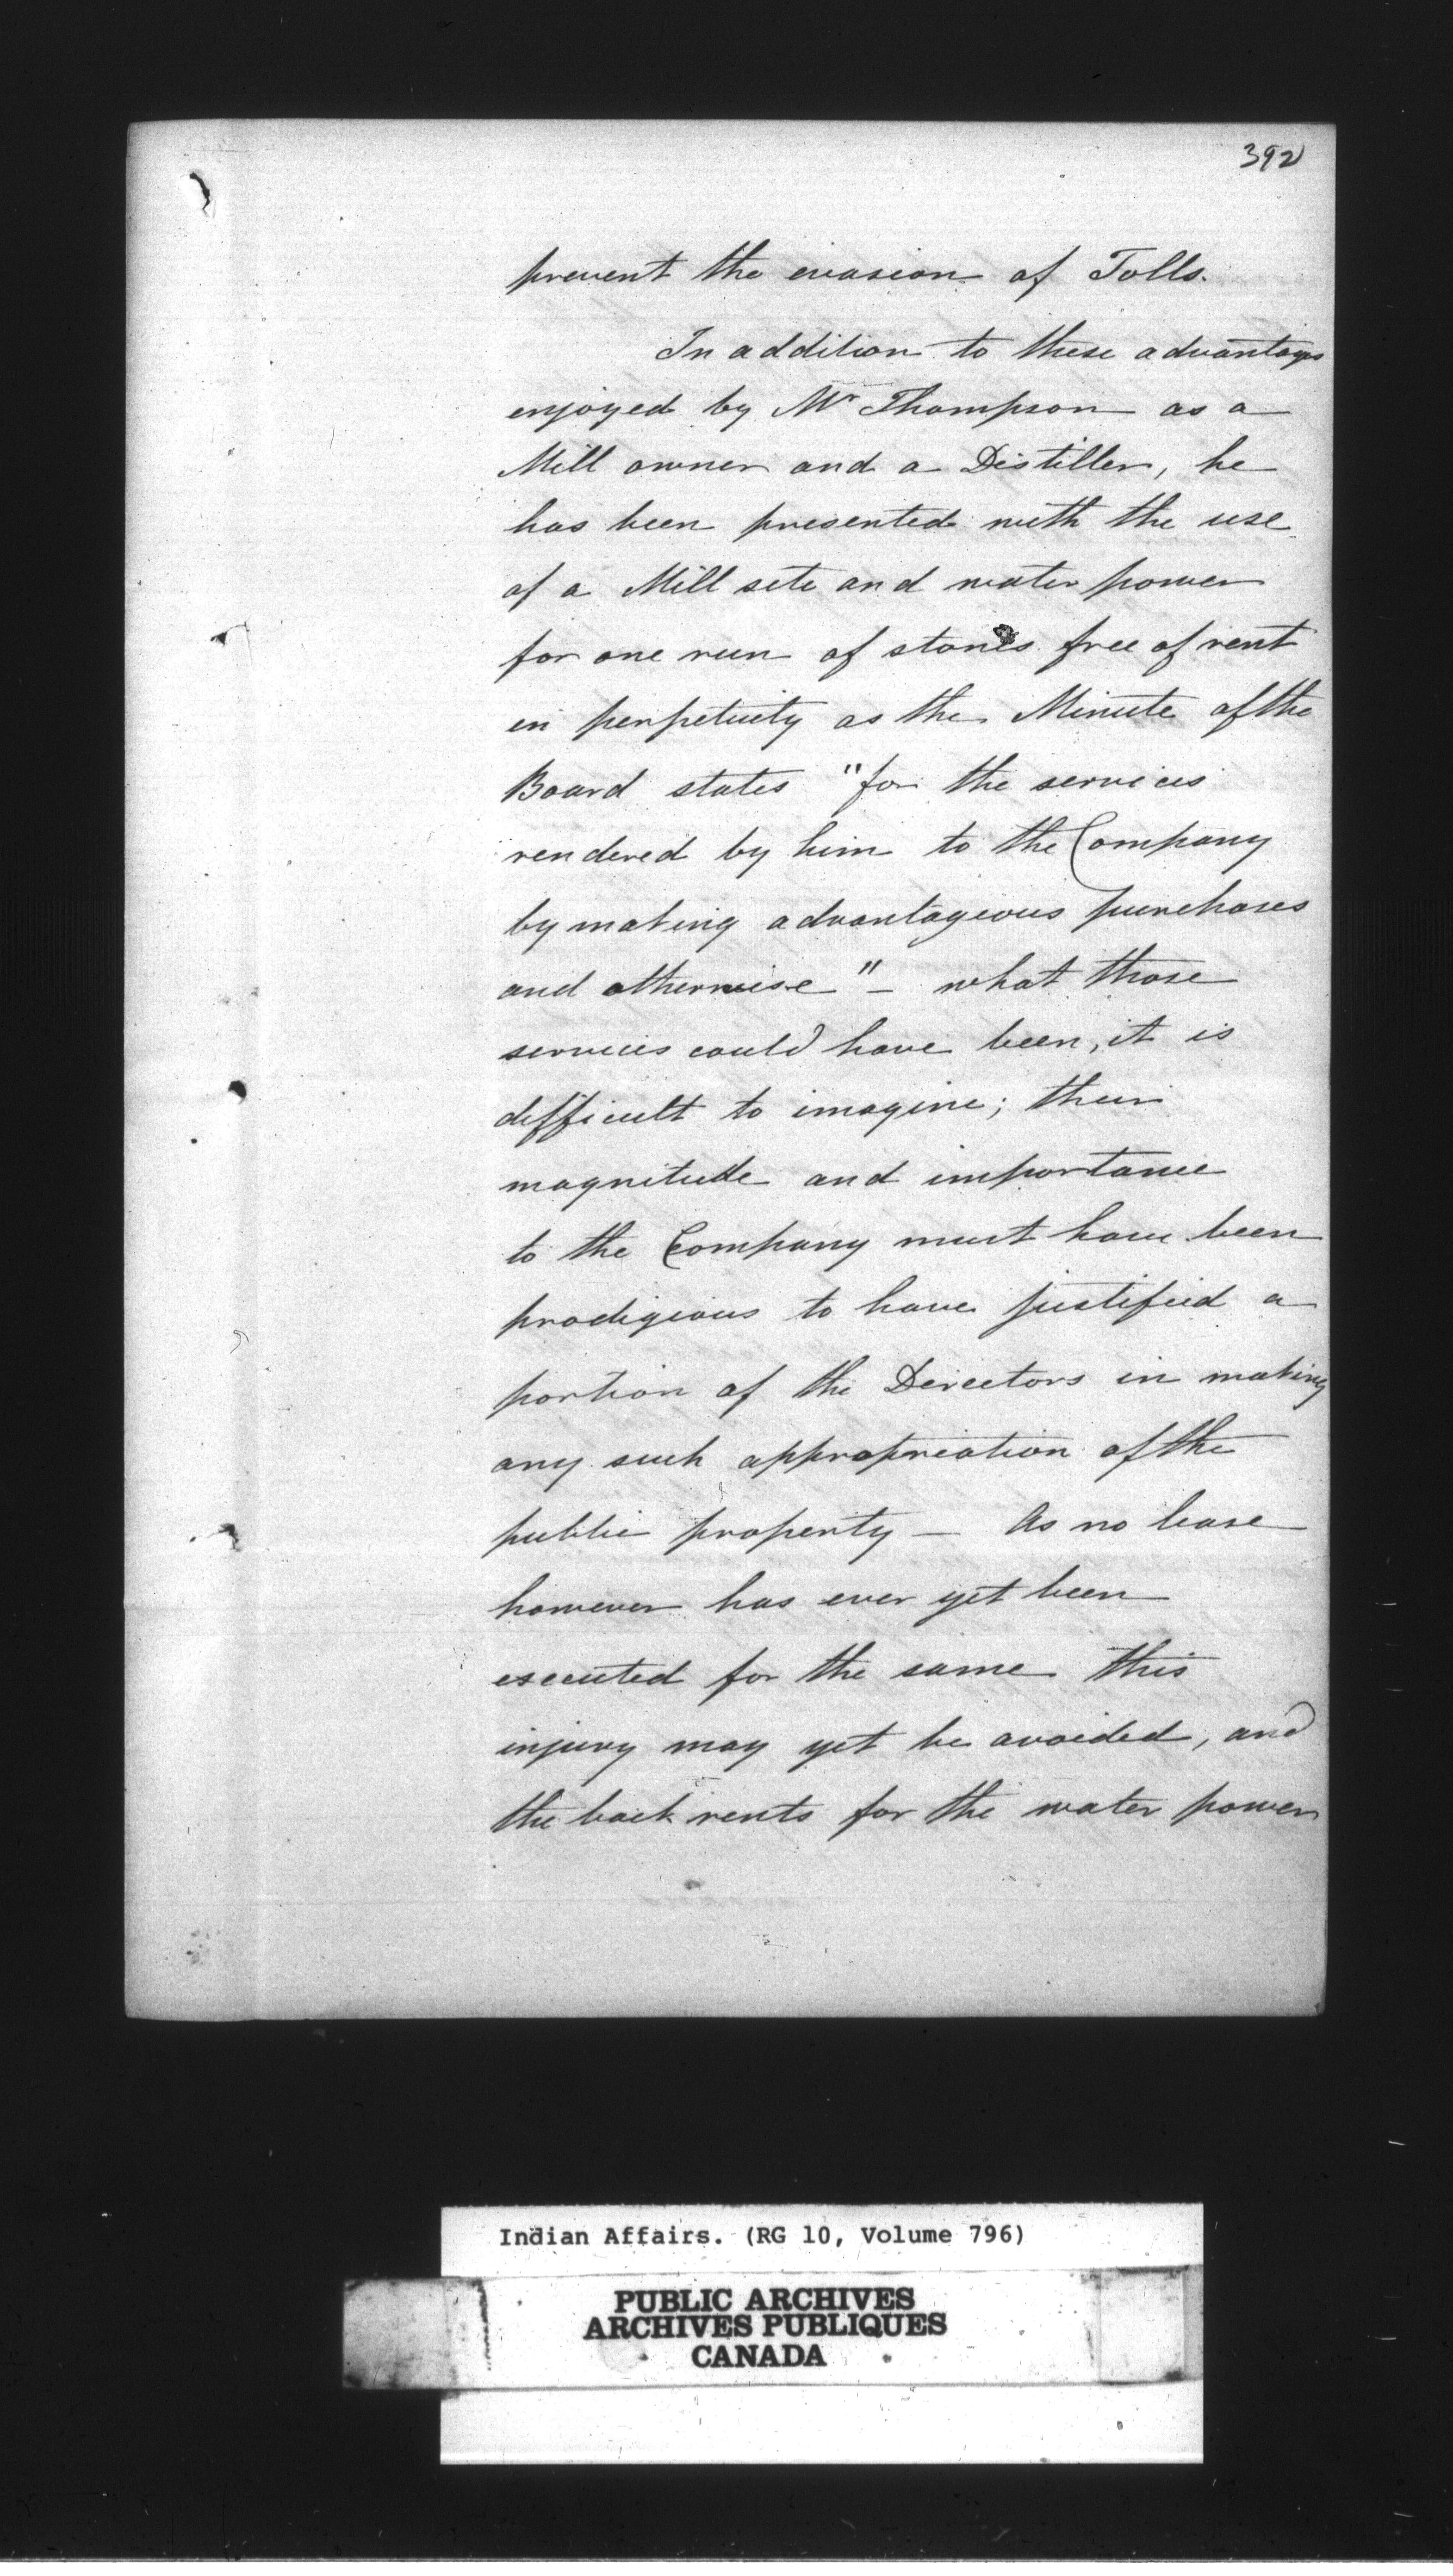 392
prevent the evasion of Tolls.
In addition to these advantages
enjoyed by Mr Thompson as a
Mill owner and a Distiller, he
has been presented with the use
of a Mill site and water power
for one run of stones free of rent
in perpetuity as the Minute of the
Board states "for the services
rendered by him to the Company
by making advantageous purchases
and otherwise" - what those
services could have been, it is
difficult to imagine; their
magnitude and importance
to the Company must have been
prodigious to have justified a
portion of the Directors in making
any such appropriation of the
public property - As no lease
however has ever yet been
executed for the same this
injury may yet be avoided, and
the back rents for the water power
Indian Affairs. (RG 10, Volume 796)
PUBLIC ARCHIVES
ARCHIVES PUBLIQUES
CANADA